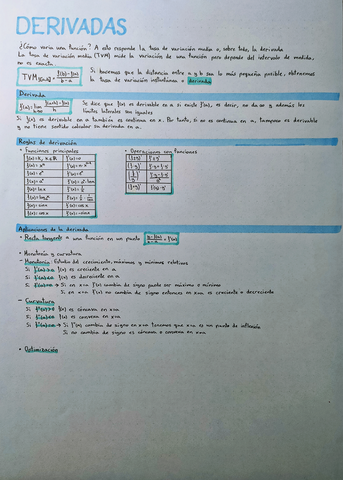 DERIVADAS
¿Cómo varía una función? A esto responde la tasa de variación media o, sobre todo, la derivada
La tasa de variación media (TVM) mide la variación de una función pero depende del intervalo de medida,
no es exacta.
TVM [a,b] = f(b)-f(a) / b-a
Si hacemos que la distancia entre a y b sea lo más pequeña posible, obtenemos
la tasa de variación instantánea o derivada
Derivada
Se dice que f(x) es derivable en a si existe f'(a), es decir, no da ∞ y además los
límites laterales son iguales
Si f(x) es derivable en a también es continua en x. Por tanto, si no es continua en a, tampoco es derivable
y no tiene sentido calcular su derivada en a.
Reglas de derivación
• Funciones principales
• Operaciones con funciones
f(x)=K, K∈R f'(x)=0
f(x)=xⁿ f'(x)=n·xⁿ⁻¹
f(x)=eˣ f'(x)=eˣ
f(x)=aˣ f'(x)=aˣ·lna
f(x)=lnx f'(x)=1/x
f(x)=sinx f'(x)=cosx
f(x)=cosx f'(x)=-sinx
Aplicaciones de la derivada
• Recta tangente a una función en un punto
• Monotonía y curvatura
– Monotonía: Estudio del crecimiento, máximos y mínimos relativos
Si f'(a)>0 f(x) es creciente en a
Si f'(a)<0 f(x) es decreciente en a
Si f'(a)=0 → Si en x=a f'(x) cambia de signo puede ser máximo o mínimo
Si en x=a f'(x) no cambia de signo entonces en x=a es creciente o decreciente
– Curvatura
Si f''(a)>0 f(x) es cóncava en x=a
Si f''(a)<0 f(x) es convexa en x=a
Si f''(a)=0 → Si f''(x) cambia de signo en x=a tenemos que x=a es un punto de inflexión
Si no cambia de signo es cóncava o convexa en x=a
• Optimización